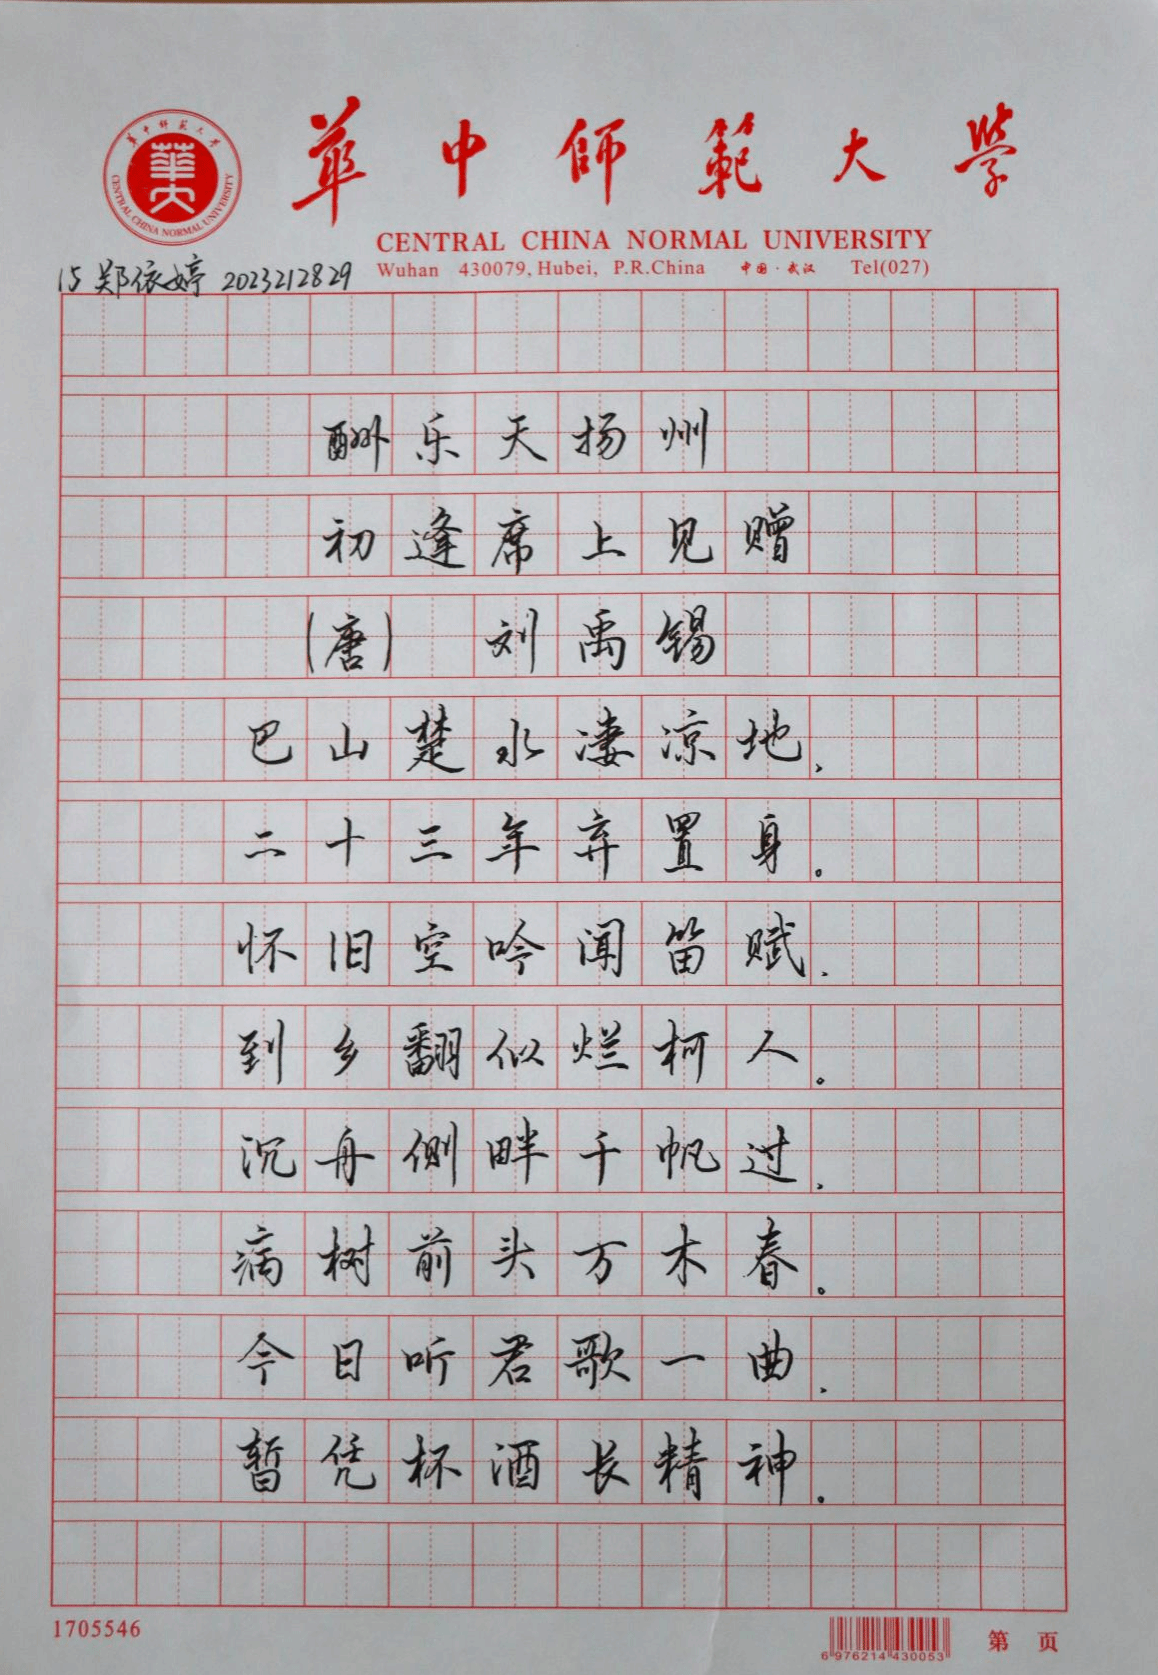 華中師範大學
華中師範大學
CENTRAL CHINA NORMAL UNIVERSITY
CENTRAL CHINA NORMAL UNIVERSITY
Wuhan 430079, Hubei, P.R.China 中国·武汉 Tel(027)
15 郑依婷 2023212829
酬乐天扬州
初逢席上见赠
(唐) 刘禹锡
巴山楚水凄凉地,
二十三年弃置身。
怀旧空吟闻笛赋,
到乡翻似烂柯人。
沉舟侧畔千帆过,
病树前头万木春。
今日听君歌一曲,
暂凭杯酒长精神。
1705546
6 976214 430053
第 页